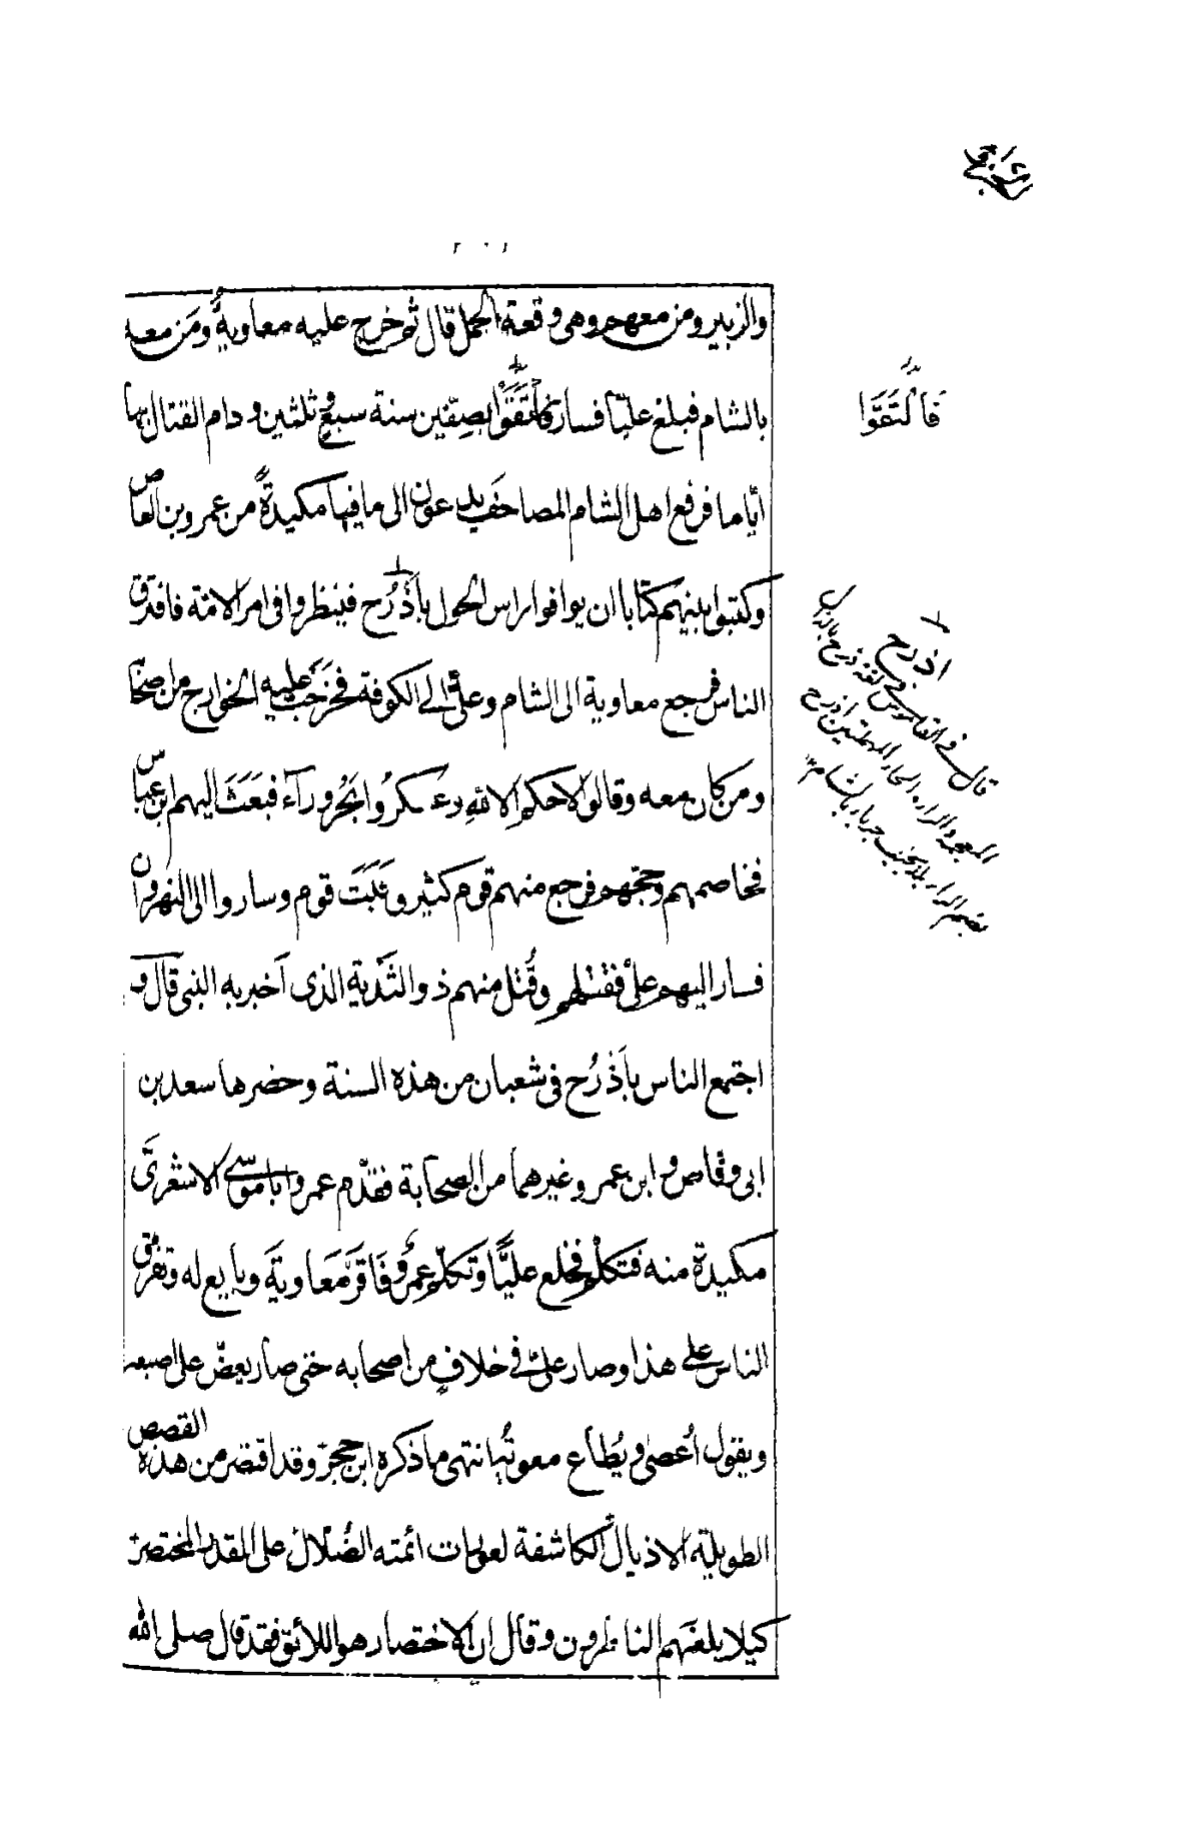 ٢٠١
والزبير ومن معهم وهى وقعة الجمل قال ثم خرج عليه معاويةُ ومَن معه
بالشام فبلغ عليّاً فسار فالتقَوا بصِفّين سنة سبعٍ وثلثين ودام القتال بها
ايّاما فرفع اهل الشام المصاحف يدعون الى ما فيها مكيدةً من عمرو بن العاص
وكتبوا بينهم كتابا ان يوافوا راس الحول باَذرُح فينظروا فى امر الامة فافترق
الناس فرجع معاوية الى الشام وعلىّ الى الكوفة فخرجَت عليه الخوارج من اصحابه
ومن كان معه وقالوا لا حكم الا لله وعسكرُوا بحَرُوراَء فبَعَثَ اليهم ابن عباس
فخاصمهم وحجّهم فرجع منهم قوم كثير وثَبَتَ قوم وساروا الى النهروان
فسار اليهم علىّ فقتلهم وقُتل منهم ذو الثَديَة الذى اَخبر به النبى قال و
اجتمع الناس باَذرُح فى شعبان من هذه السنة وحضرها سعد بن
ابى وقاص وابن عمر وغيرهما من الصحابة فقدّم عمرو ابا موسى الاشعرىَّ
مكيدةً منه فتكلّم فخلع عليًّا وَتكلّم عمرٌو فَاقرَّ مُعَاويةَ وبايع له وتفرق
الناس على هذا وصار علىّ فى خلافٍ من اصحابه حتى صار يعضّ على اصبعه
ويقول اُعصىٰ ويُطاَع معوية انتهى ما ذكره ابن حجر وقد اقتصر من هذه القصص
الطويلة الاذيال الكاشفة لعورات ائمته الضُلّال على القدر المختصر
كيلا يلعنَهم الناظرون وقال ان الاختصار هو اللائق فقد قال صلى الله
فَالْتَقَوَا
اذرح